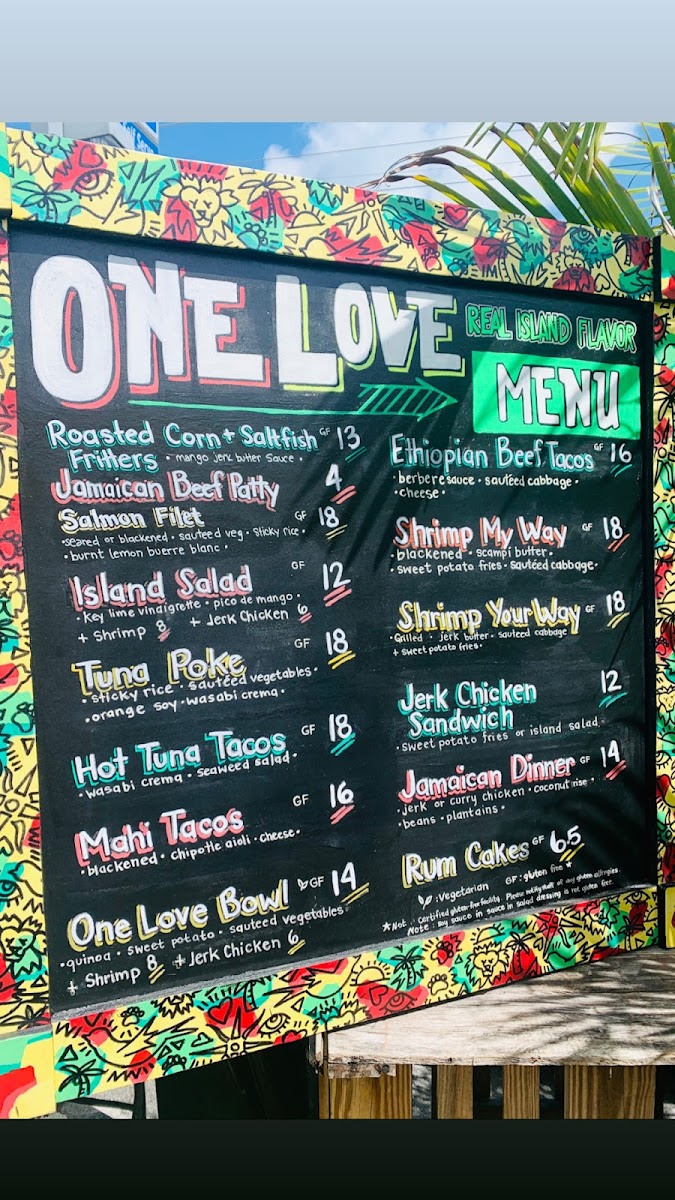 ONE LOVE
REAL ISLAND FLAVOR
MENU
Roasted Corn + Saltfish GF 13
Fritters • mango jerk butter sauce •
Jamaican Beef Patty 4
Salmon Filet GF 18
• seared or blackened • sauteed veg • sticky rice •
• burnt lemon buerre blanc •
Island Salad GF 12
• Key lime vinaigrette • pico de mango •
+ Shrimp 8 + Jerk Chicken 6
Tuna Poke GF 18
• sticky rice • sautéed vegetables •
• orange soy • wasabi crema •
Hot Tuna Tacos GF 18
• wasabi crema • seaweed salad •
Mahi Tacos GF 16
• blackened • chipotle aioli • cheese •
One Love Bowl GF 14
• quinoa • sweet potato • sauteed vegetables •
+ Shrimp 8 + Jerk Chicken 6
Ethiopian Beef Tacos GF 16
• berbere sauce • sautéed cabbage •
• cheese •
Shrimp My Way GF 18
• blackened • scampi butter •
• sweet potato fries • sautéed cabbage •
Shrimp Your Way GF 18
• Grilled • jerk butter • sauteed cabbage
+ sweet potato fries •
Jerk Chicken 12
Sandwich
• sweet potato fries or island salad •
Jamaican Dinner GF 14
• jerk or curry chicken • coconut rise •
• beans • plantains •
Rum Cakes GF 6.5
: Vegetarian GF : gluten free *
* Not Certified gluten free facility. Please notify staff of any gluten allergies.
Note : soy sauce in salad dressing is not gluten free.